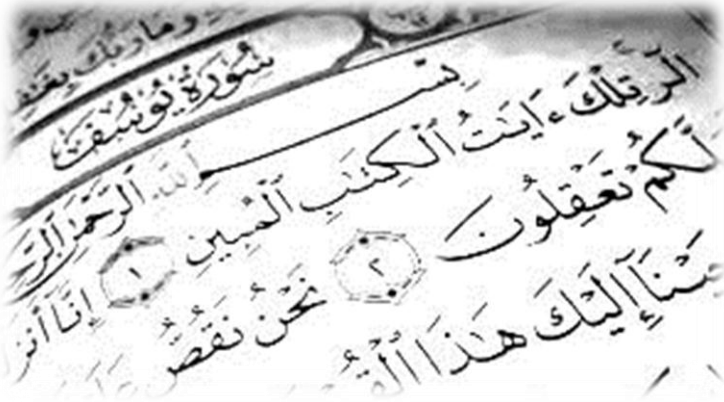 وما ربك بغافل
سُورَةُ يُوسُفَ
بِسْمِ ٱللَّهِ ٱلرَّحْمَٰنِ ٱلرَّ
الٓر تِلْكَ ءَايَٰتُ ٱلْكِتَٰبِ ٱلْمُبِينِ ١ إِنَّآ أَنز
لَّكُمْ تَعْقِلُونَ ٢ نَحْنُ نَقُصُّ عَلَ
يْنَآ إِلَيْكَ هَٰذَا ٱلْقُ